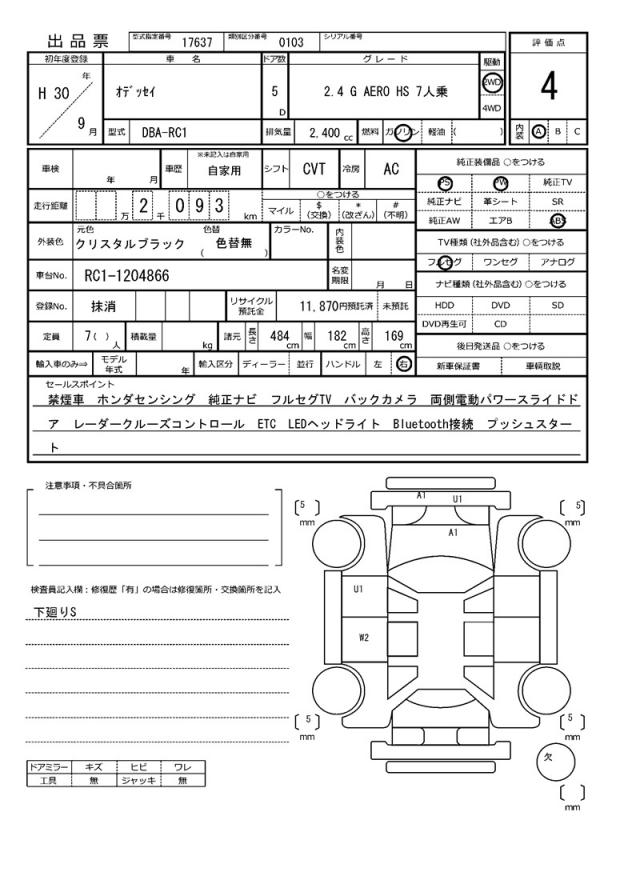 出品票 型式指定番号 17637 類別区分番号 0103 シリアル番号
初年度登録 車名 ドア数 グレード 駆動 評価点
H 30 年 9 月 オデッセイ 5 D 2.4 G AERO HS 7人乗 2WD 4WD 4
型式 DBA-RC1 排気量 2,400 cc 燃料 ガソリン 軽油 ( ) 内装 A B C
車検 年 月 車歴 ※未記入は自家用 自家用 シフト CVT 冷房 AC 純正装備品 ○をつける
PS PW 純正TV
走行距離 2 093 万 千 km ○をつける マイル $ (交換) * (改ざん) # (不明) 純正ナビ 革シート SR
純正AW エアB ABS
外装色 元色 クリスタルブラック 色替 ( 色替無 ) カラーNo. 内装色 TV種類 (社外品含む) ○をつける
フルセグ ワンセグ アナログ
車台No. RC1-1204866 名変期限 月 日 ナビ種類 (社外品含む) ○をつける
登録No. 抹消 リサイクル預託金 11,870円預託済 未預託 HDD DVD SD
DVD再生可 CD
定員 7( )人 積載量 kg 諸元 長さ 484 cm 幅 182 cm 高さ 169 cm 後日発送品 ○をつける
輸入車のみ⇒ モデル年式 年 輸入区分 ディーラー 並行 ハンドル 左 右 新車保証書 車輌取説
セールスポイント
禁煙車 ホンダセンシング 純正ナビ フルセグTV バックカメラ 両側電動パワースライドド
ア レーダークルーズコントロール ETC LEDヘッドライト Bluetooth接続 プッシュスター
ト
注意事項・不具合箇所
検査員記入欄:修復歴「有」の場合は修復箇所・交換箇所を記入
下廻りS
ドアミラー キズ ヒビ ワレ
工具 無 ジャッキ 無
A1 U1
5 mm 5 mm
A1
U1
W2
5 mm 5 mm
欠
mm